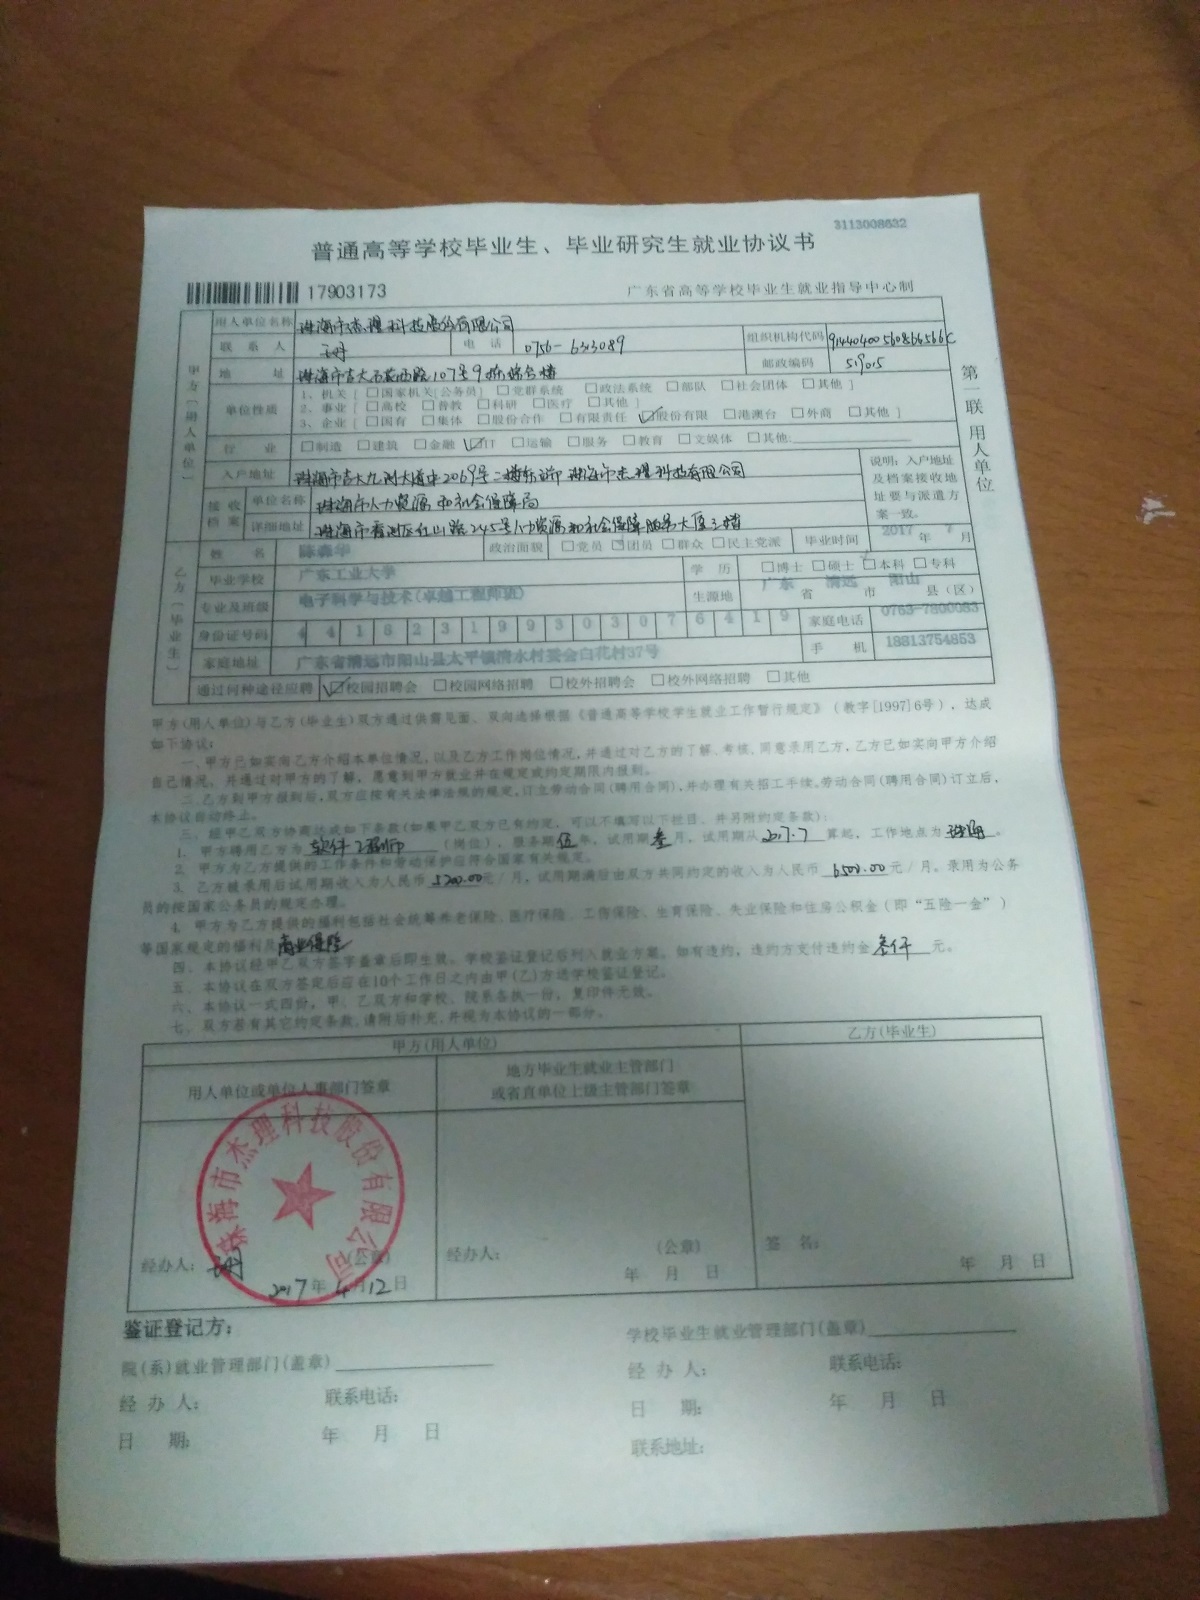 3113008632
普通高等学校毕业生、毕业研究生就业协议书
17903173
广东省高等学校毕业生就业指导中心制
第一联 用人单位
甲方（用人单位）
用人单位名称 珠海市杰理科技股份有限公司
联系人 电话 0756-6313089 组织机构代码
地址 珠海市吉大石花西路107号9栋综合楼 邮政编码 519015
单位性质
1、机关 [ □国家机关[公务员] □党群系统 □政法系统 □部队 □社会团体 □其他 ]
2、事业 [ □高校 □普教 □科研 □医疗 □其他 ]
3、企业 [ □国有 □集体 □股份合作 □有限责任 ☑股份有限 □港澳台 □外商 □其他 ]
行业 □制造 □建筑 □金融 ☑IT □运输 □服务 □教育 □文媒体 □其他:
入户地址 珠海市吉大九洲大道中2069号二楼 珠海市杰理科技有限公司
说明：入户地址及档案接收地址要与派遣方案一致。
接收档案 单位名称 珠海市人力资源和社会保障局
详细地址 珠海市香洲区红山路245号人力资源和社会保障服务大厦三楼
乙方（毕业生）
姓名 陈森华 政治面貌 □党员 □团员 □群众 □民主党派 毕业时间 2017 年 7 月
毕业学校 广东工业大学 学历 □博士 □硕士 □本科 □专科
专业及班级 电子科学与技术(卓越工程师班) 生源地 广东 省 清远 市 阳山 县（区）
身份证号码 家庭电话 0763-7800083
家庭地址 广东省清远市阳山县太平镇清水村委会白花村37号 手机 18813754853
通过何种途径应聘 ☑校园招聘会 □校园网络招聘 □校外招聘会 □校外网络招聘 □其他
甲方(用人单位)与乙方(毕业生)双方通过供需见面、双向选择根据《普通高等学校学生就业工作暂行规定》(教字[1997]6号)，达成
如下协议:
一、甲方已如实向乙方介绍本单位情况,以及乙方工作岗位情况,并通过对乙方的了解、考核,同意录用乙方,乙方已如实向甲方介绍
自己情况，并通过对甲方的了解，愿意到甲方就业并在规定或约定期限内报到。
二、乙方到甲方报到后,双方应按有关法律法规的规定,订立劳动合同(聘用合同),并办理有关招工手续,劳动合同(聘用合同)订立后，
本协议自动终止。
三、经甲乙双方协商达成如下条款(如果甲乙双方已有约定，可以不填写以下栏目，并另附约定条款):
1、甲方聘用乙方为 软件工程师 (岗位)，服务期 伍 年，试用期 叁 月，试用期从 2017.7 算起，工作地点为 珠海。
2、甲方为乙方提供的工作条件和劳动保护应符合国家有关规定。
3、乙方被录用后试用期收入为人民币 5200.00元/月，试用期满后由双方共同约定的收入为人民币 6500.00元/月。录用为公务
员的按国家公务员的规定办理。
4、甲方为乙方提供的福利包括社会统筹养老保险、医疗保险、工伤保险、生育保险、失业保险和住房公积金（即“五险一金”）
等国家规定的福利及 商业保险
四、本协议经甲乙双方签字盖章后即生效，学校鉴证登记后列入就业方案。如有违约，违约方支付违约金 叁仟 元。
五、本协议在双方签定后应在10个工作日之内由甲(乙)方送学校鉴证登记。
六、本协议一式四份，甲、乙双方和学校、院系各执一份，复印件无效。
七、双方若有其它约定条款,请附后补充,并视为本协议的一部分。
甲方(用人单位) 乙方(毕业生)
用人单位或单位人事部门签章
地方毕业生就业主管部门
或省直单位上级主管部门签章
珠海市杰理科技股份有限公司
经办人: (公章)
2017年4月12日
经办人: (公章)
年 月 日
签 名:
年 月 日
鉴证登记方:
院(系)就业管理部门(盖章)
经 办 人: 联系电话:
日 期: 年 月 日
学校毕业生就业管理部门(盖章)
经 办 人: 联系电话:
日 期: 年 月 日
联系地址: